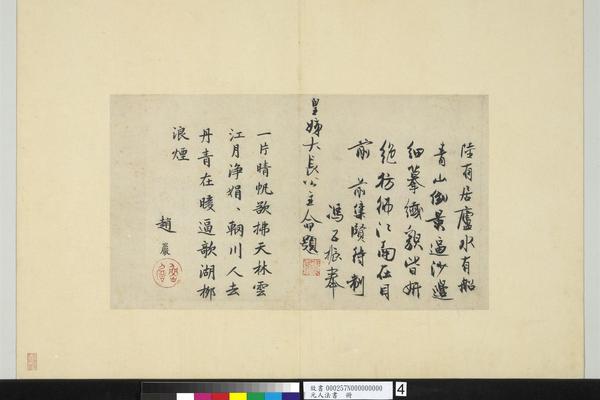 陸有居廬水有船
青山倒景逼沙邊
細摹皆妍
絕彷彿江南在目
前 前集賢待制
馮子振奉
皇姊大長公主命題
一片晴帆欲拂天林雲
江月淨娟、輞川人去
丹青在暖逼歌湖柳
浪煙
趙嵒
故書 000257N000000000
元人法書 冊
4